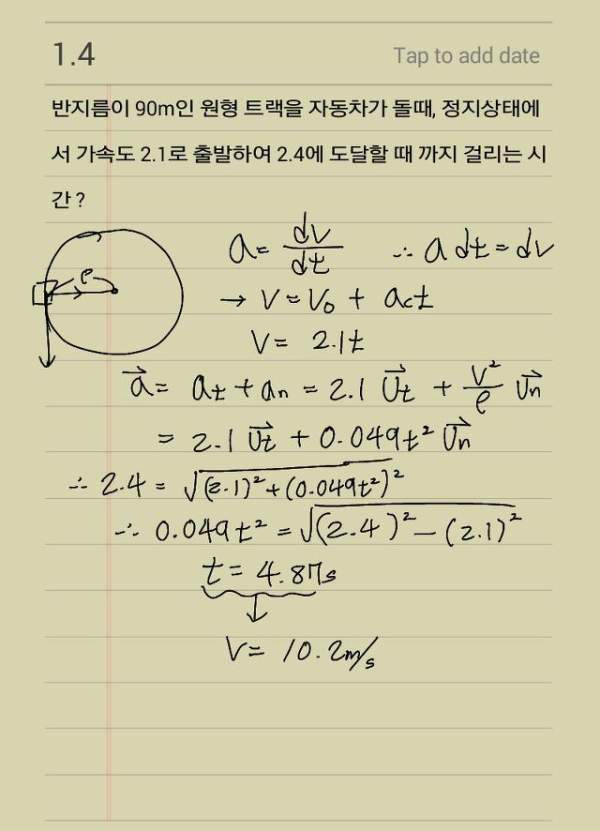 1.4 Tap to add date
반지름이 90m인 원형 트랙을 자동차가 돌때, 정지상태에
서 가속도 2.1로 출발하여 2.4에 도달할 때 까지 걸리는 시
간 ?
ρ
a = dv/dt ∴ a dt = dv
→ V = V₀ + a꜀t
V = 2.1t
a⃗ = at + an = 2.1 U⃗t + V²/ρ U⃗n
= 2.1 U⃗t + 0.049t² U⃗n
∴ 2.4 = √(2.1)²+(0.049t²)²
∴ 0.049t² = √(2.4)² – (2.1)²
t = 4.87s
V = 10.2m/s